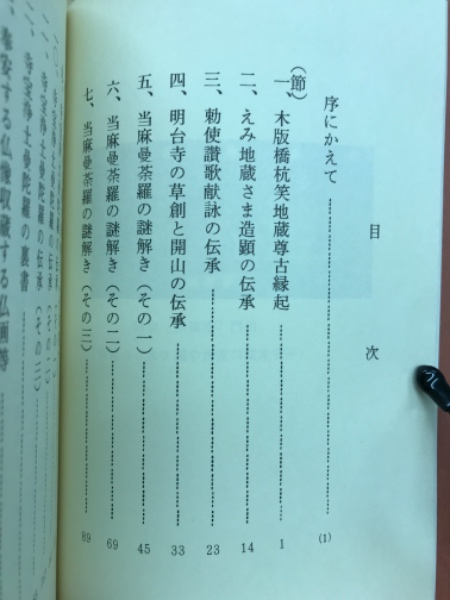 目次
序にかえて (1)
(節)
一、木版橋杭笑地蔵尊古縁起 1
二、えみ地蔵さま造顕の伝承 14
三、勅使讃歌献詠の伝承 23
四、明台寺の草創と開山の伝承 33
五、当麻曼荼羅の謎解き（その一） 45
六、当麻曼荼羅の謎解き（その二） 69
七、当麻曼荼羅の謎解き（その三） 89
寺宝浄土曼陀羅の伝承
寺宝浄土曼陀羅の裏書
奉安する仏像収蔵する仏画等